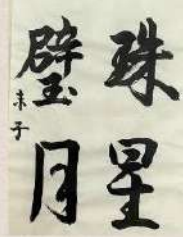 珠星
璧月
耒子